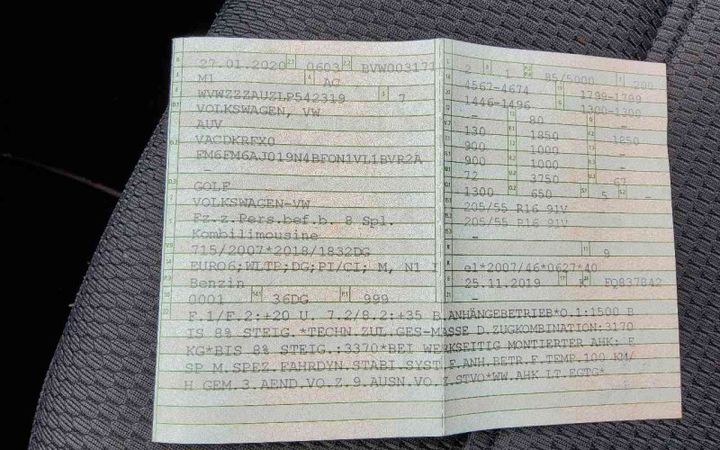 27.01.2020 0603 BVW003171
M1 AC
WVWZZZAUZLP542319 7
VOLKSWAGEN, VW
AUV
VACDKRFX0
FM6FM6AJ019N4BFON1VL1BVR2A
-
GOLF
VOLKSWAGEN-VW
Fz.z.Pers.bef.b. 8 Spl.
Kombilimousine
715/2007*2018/1832DG
EURO6;WLTP;DG;PI/CI; M, N1 I
Benzin
0001 36DG 999
2 1 85/5000 200
4567-4674 1799-1799
1446-1496 1300-1300
- 80 -
130 1850 1850
900 1000 -
900 1000 -
72 3750 67
1300 650 5 -
205/55 R16 91V
205/55 R16 91V
-
9
e1*2007/46*0627*40
25.11.2019 K FQ837842
-
F.1/F.2:+20 U. 7.2/8.2:+35 B.ANHÄNGEBETRIEB*O.1:1500 B
IS 8% STEIG.*TECHN.ZUL.GES-MASSE D.ZUGKOMBINATION:3170
KG*BIS 8% STEIG.:3370*BEI WERKSEITIG MONTIERTER AHK: E
SP M.SPEZ.FAHRDYN.STABI.SYST.F.ANH.BETR.F.TEMP.100 KM/
H GEM.3.AEND.VO.Z.9.AUSN.VO.Z.STVO*WW.AHK LT.EGTG*